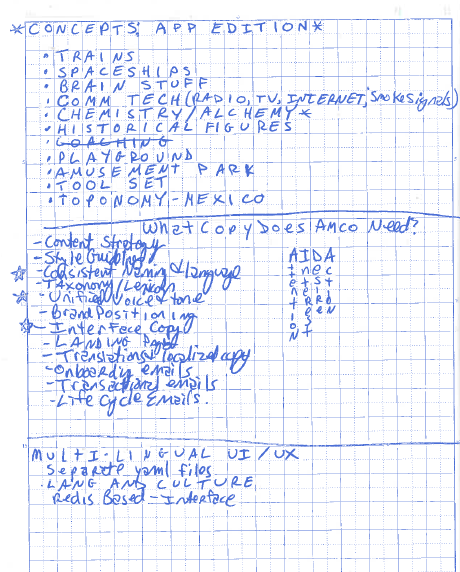 *CONCEPTS: APP EDITION*
• TRAINS
• SPACESHIPS
• BRAIN STUFF
• COMM TECH (RADIO, TV, INTERNET, SmokeSignals)
• CHEMISTRY/ALCHEMY*
• HISTORICAL FIGURES
• COACHING
• PLAYGROUND
• AMUSEMENT PARK
• TOOL SET
• TOPONOMY - MEXICO
What Copy Does AMCO Need?
- Content Strategy
- Style Guide
☆ - Consistent Naming & language
- Taxonomy/Lexicon
☆ - Unified Voice & tone
- Brand Positioning
☆ - Interface Copy
- LANDING Pages
- Translations & localized copy
- Onboarding emails
- Transactional emails
- Life Cycle Emails.
AIDA
MULTI-LINGUAL UI/UX
Separate yaml files
• LANG AND CULTURE
Redis Based - Interface